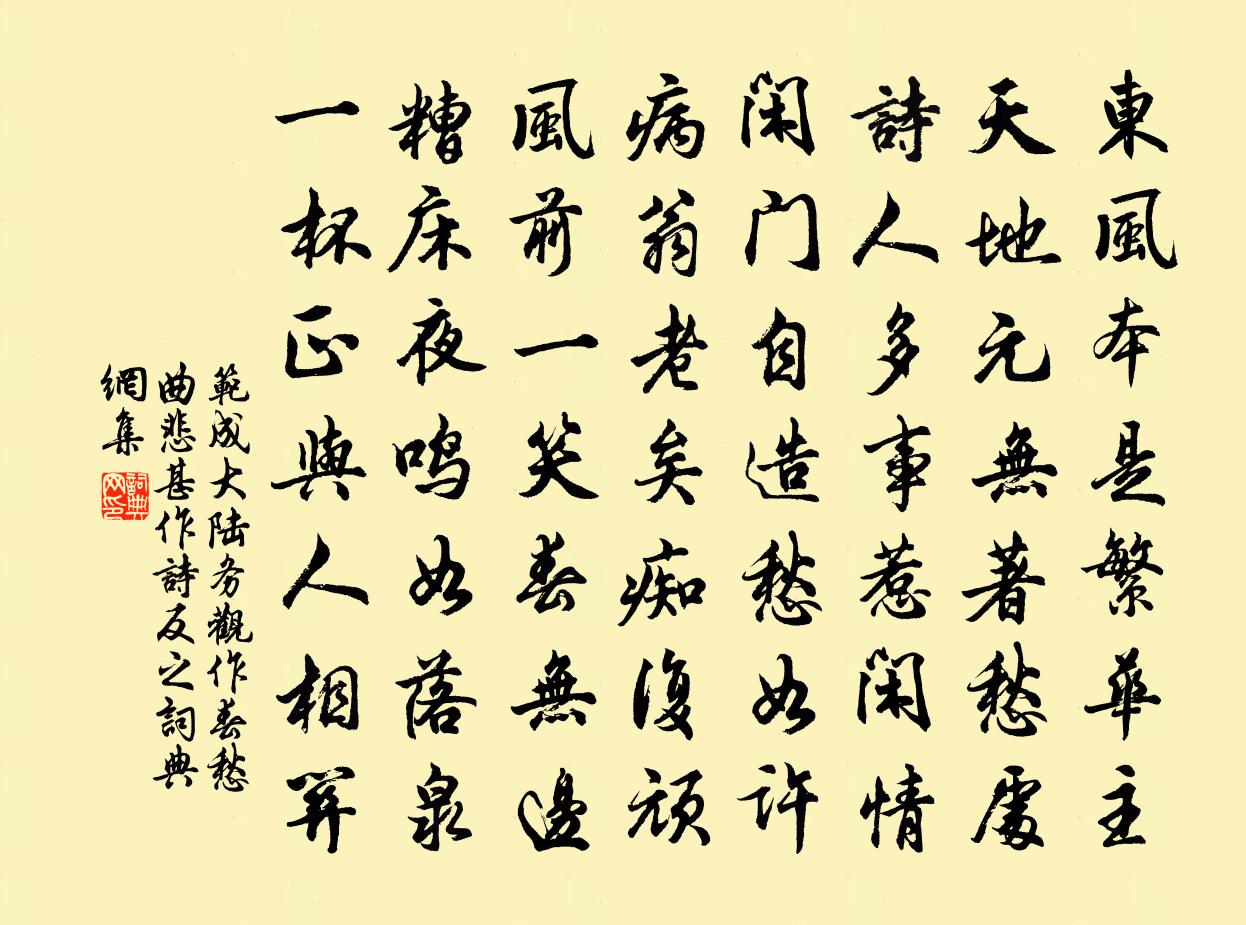 東風本是繁華主
天地元無著愁處
詩人多事惹閑情
閑门自造愁如許
病翁老矣痴復頑
風前一笑春無邊
糟床夜鸣如落泉
一杯正與人相關
範成大陆务觀作春愁
曲悲甚作詩反之詞典
網集
詞典网印